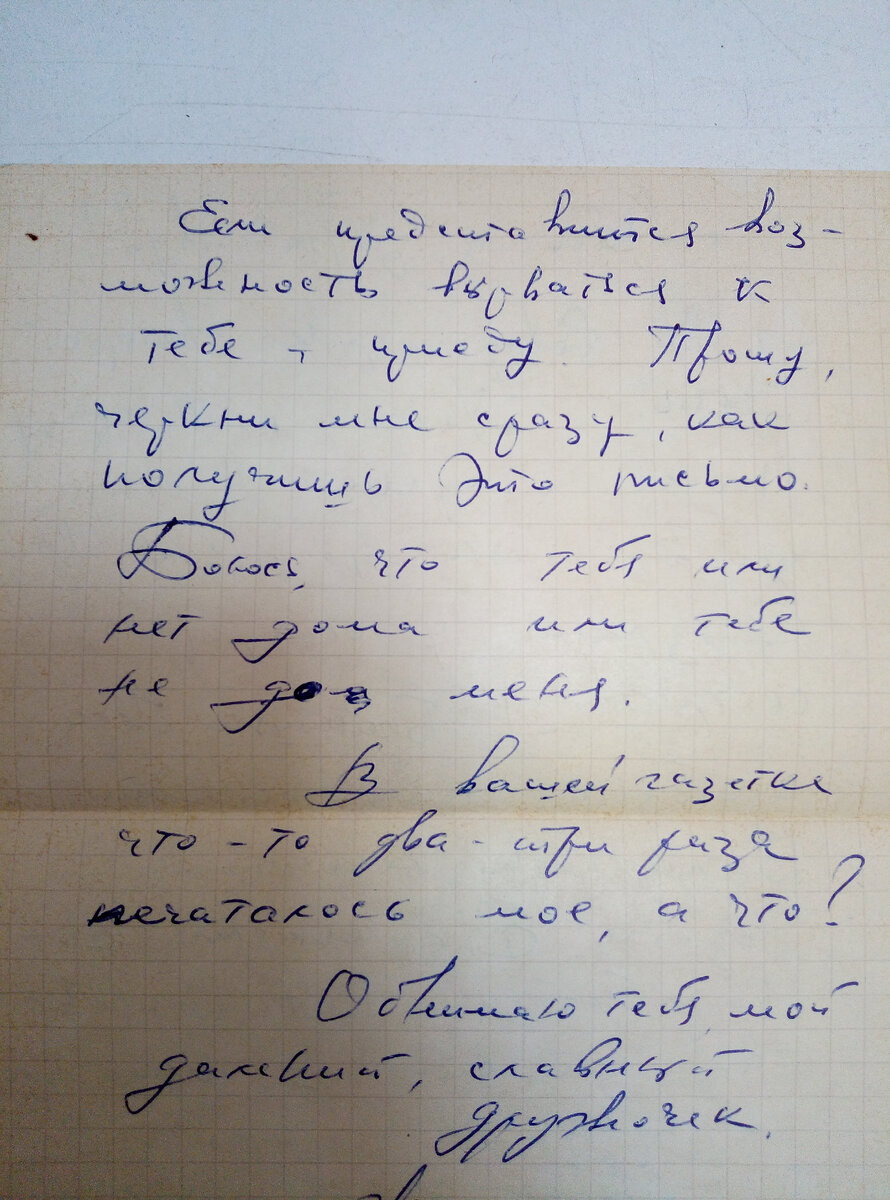 Если представится воз-
можность вырваться к
тебе – приеду. Прошу,
черкни мне сразу, как
получишь это письмо.
Боюсь, что тебя или
нет дома или тебе
не до меня.
В вашей газетке
что-то два-три раза
печаталось мое, а что?
Обнимаю тебя, мой
далекий, славный
дружочек.